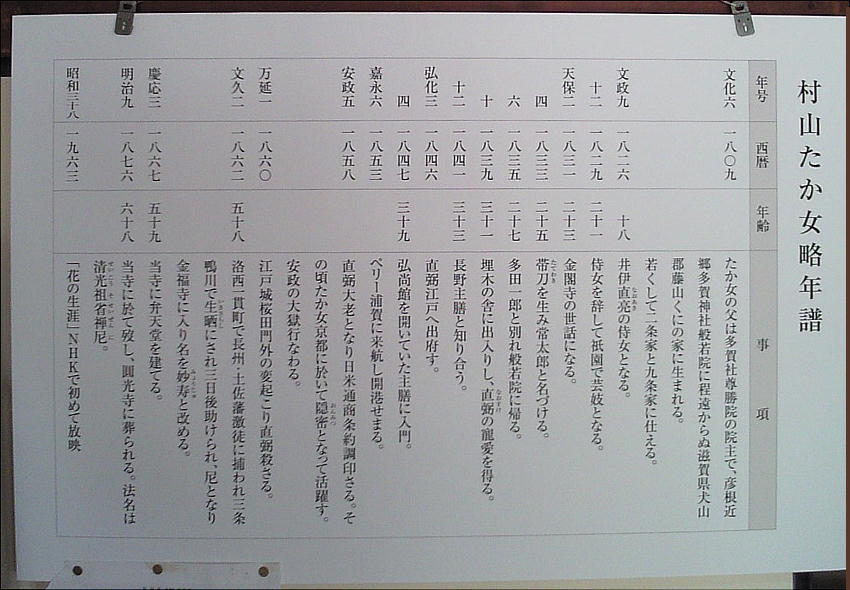 村山たか女略年譜
年号 西暦 年齢 事項
文化六 一八〇九 たか女の父は多賀社尊勝院の院主で、彦根近
郷多賀神社般若院に程遠からぬ滋賀県犬山
郡藤山くにの家に生まれる。
若くして二条家と九条家に仕える。
文政九 一八二六 十八 井伊直亮の侍女となる。
なおあき
十二 一八二九 二十一 侍女を辞して祇園で芸妓となる。
天保二 一八三一 二十三 金閣寺の世話になる。
四 一八三三 二十五 帯刀を生み常太郎と名づける。
たてわき
六 一八三五 二十七 多田一郎と別れ般若院に帰る。
十 一八三九 三十一 埋木の舎に出入りし、直弼の寵愛を得る。
なおすけ
十二 一八四一 三十三 長野主膳と知り合う。
弘化三 一八四六 直弼江戸へ出府す。
四 一八四七 三十九 弘尚館を開いていた主膳に入門。
嘉永六 一八五三 ペリー浦賀に来航し開港せまる。
安政五 一八五八 直弼大老となり日米通商条約調印さる。そ
の頃たか女京都に於いて隠密となって活躍す。
おんみつ
安政の大獄行なわる。
万延一 一八六〇 江戸城桜田門外の変起こり直弼殺さる。
文久二 一八六二 五十八 洛西一貫町で長州・土佐藩激徒に捕われ三条
鴨川で生晒にされ三日後助けられ、尼となり
いきさらし
金福寺に入り名を妙寿と改める。
みょうじゅ
慶応三 一八六七 五十九 当寺に弁天堂を建てる。
明治九 一八七六 六十八 当寺に於て歿し、圓光寺に葬られる。法名は
清光祖省禅尼。
せいこう そせいぜんに
昭和三十八 一九六三 「花の生涯」NHKで初めて放映